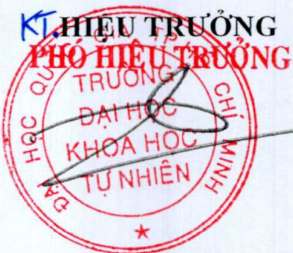 KT.HIỆU TRƯỞNG
PHÓ HIỆU TRƯỞNG
ĐẠI HỌC QUỐC GIA TP. HỒ CHÍ MINH
TRƯỜNG
ĐẠI HỌC
KHOA HỌC
TỰ NHIÊN